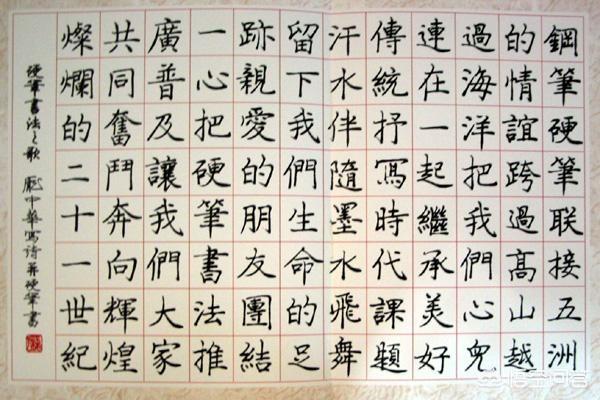 鋼筆硬筆联接五洲
的情誼跨過高山越
過海洋把我們心兒
連在一起繼承美好
傳統抒寫時代課題
汗水伴隨墨水飛舞
留下我們生命的足
跡親愛的朋友團結
一心把硬筆書法推
廣普及讓我們大家
共同奮鬥奔向輝煌
燦爛的二十一世紀
硬筆書法之歌 龐中華寫詩并硬筆書
悟空问答